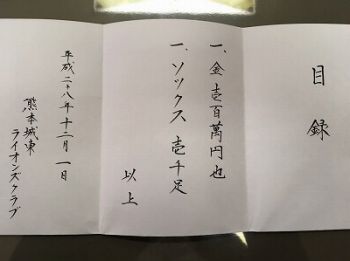 目録
一、金壱百萬円也
一、ソックス壱千足
以上
平成二十八年十二月一日
熊本城東
ライオンズクラブ